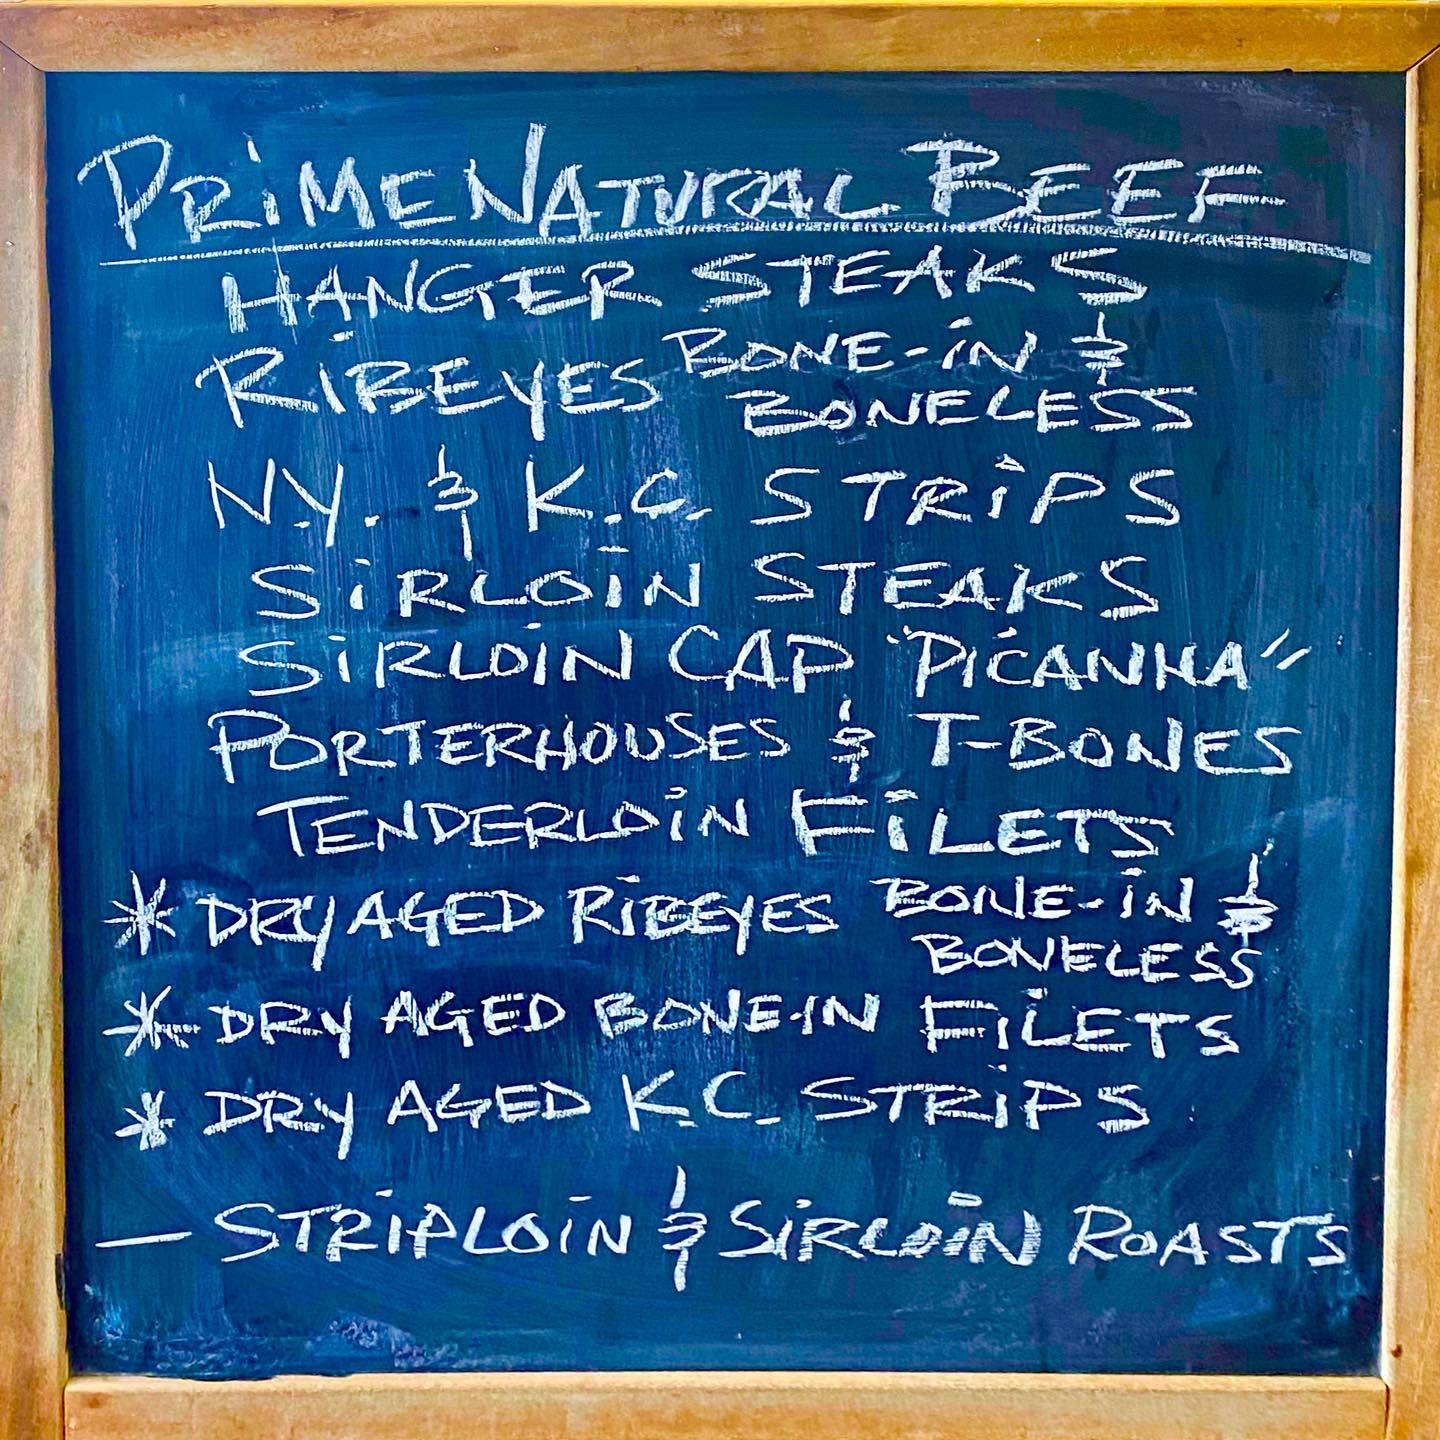 PRiME NATURAL BEEF
HANGER STEAKS
RIBEYES BONE-iN &
BONELESS
N.Y. & K.C. STRiPS
SiRLOiN STEAKS
SiRLOiN CAP "PiCANHA"
PORTERHOUSES & T-BONES
TENDERLOiN FiLETS
* DRY AGED RiBEYES BONE-iN &
BONELESS
* DRY AGED BONE-IN FiLETS
* DRY AGED K.C. STRiPS
— STRiPLOiN & SiRLOiN ROASTS